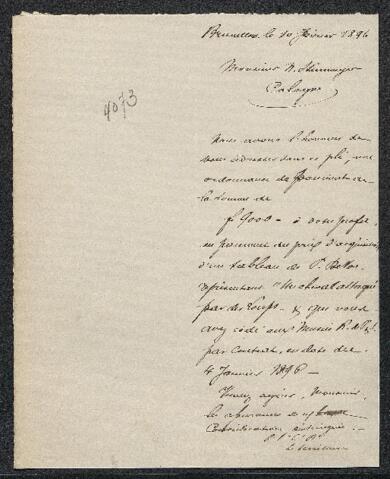 Bruxelles, le 10 février 1896
Monsieur N. Steinmeyer
Cologne
4073
Nous avons l'honneur de
vous adresser dans ce pli, une
ordonnance de paiement de
la somme de
f 9000 - à votre profit,
en paiement du prix d'acquisition
d'un tableau de P. De Vos
représentant "Un cheval attaqué
par des Loups" & que vous
avez cédé aux Musées R. de
par contrat, en date du
4 Janvier 1896 -
Veuillez agréer, Monsieur,
les assurances de
Considération distinguée.